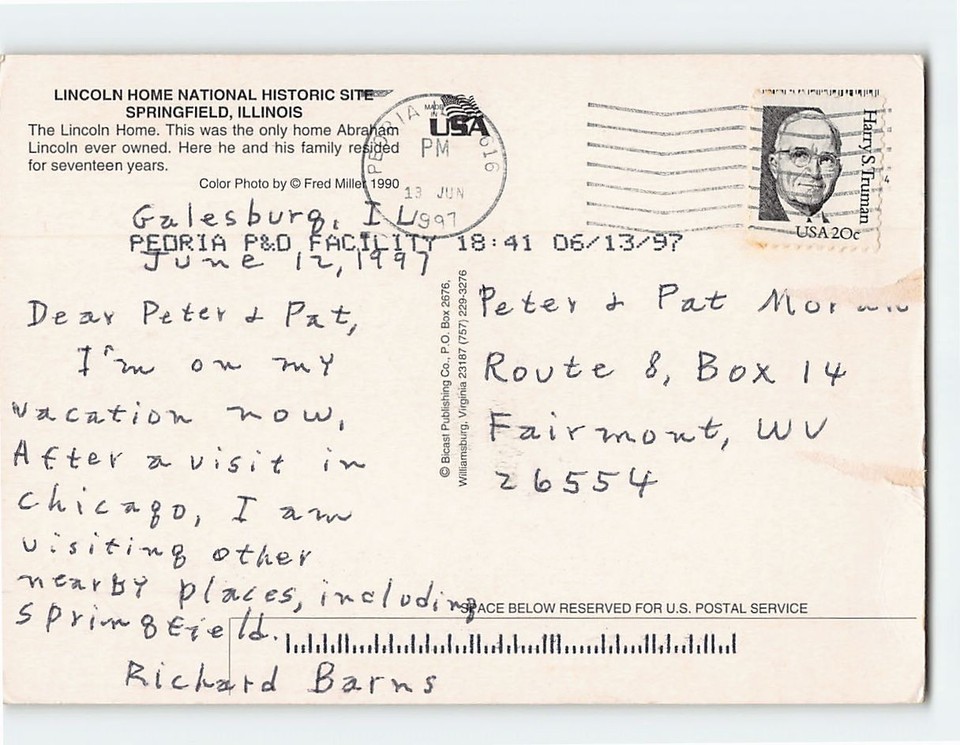 LINCOLN HOME NATIONAL HISTORIC SITE
SPRINGFIELD, ILLINOIS
The Lincoln Home. This was the only home Abraham
Lincoln ever owned. Here he and his family resided
for seventeen years.
Color Photo by © Fred Miller 1990
MADE IN
USA
PEORIA
616
PM
13 JUN
1997
Harry S. Truman
USA 20c
Galesburg, IL
PEORIA P&D FACILITY 18:41 06/13/97
June 12, 1997
Dear Peter & Pat,
I'm on my
vacation now,
After a visit in
Chicago, I am
visiting other
nearby places, including
Springfield.
Richard Barns
© Bicast Publishing Co., P.O. Box 2676,
Williamsburg, Virginia 23187 (757) 229-3276
Peter & Pat
Route 8, Box 14
Fairmont, WV
26554
SPACE BELOW RESERVED FOR U.S. POSTAL SERVICE